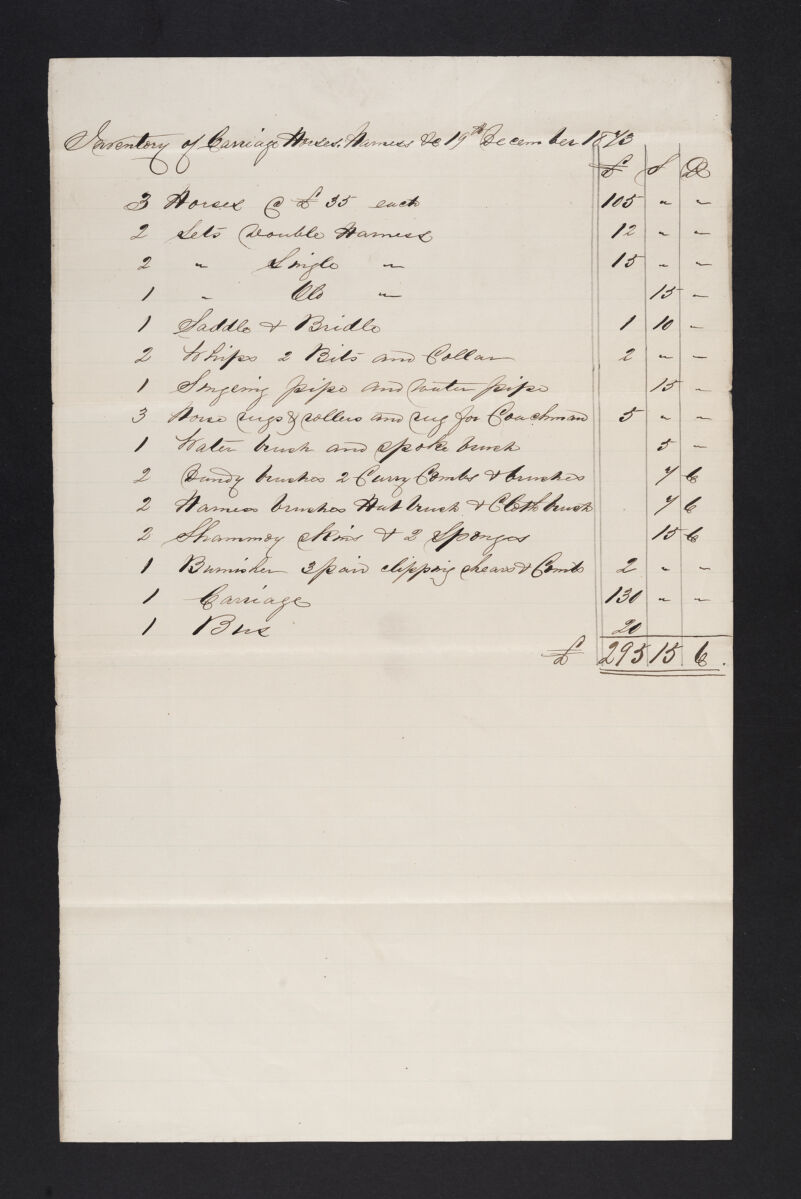 Inventory of Carriage Horses, Harness &c 19th December 1873
£ S D
3 Horses @ £35 each 105 " "
2 Sets Double Harness 12 " "
2 " Single " 15 " "
1 " Old " 15 "
1 Saddle & Bridle 1 10 "
2 Whips 2 Bits and Collar 2 " "
1 Singeing pipe and water pipe 15 "
3 Horse rugs & rollers and rug for Coachman 5 " "
1 Water brush and spoke brush 5 "
2 Dandy brushes 2 Curry Combs & brushes 7 6
2 Harness brushes Hat brush & Cloth brush 7 6
2 Shammoy skins & 2 Sponges 15 6
1 Burnisher 3 pair clipping shears & Comb 2 " "
1 Carriage 130 " "
1 Bus 20
£ 295 15 6.